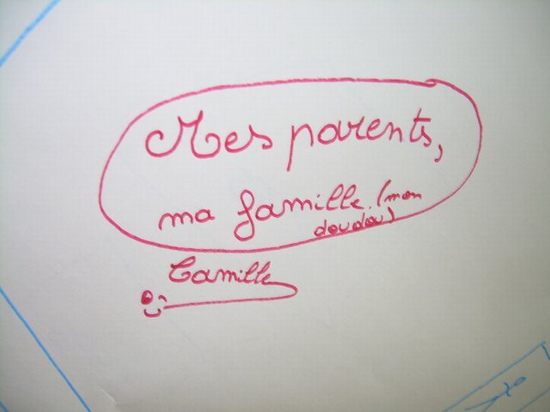 Mes parents,
ma famille. (mon
doudou)
Camille